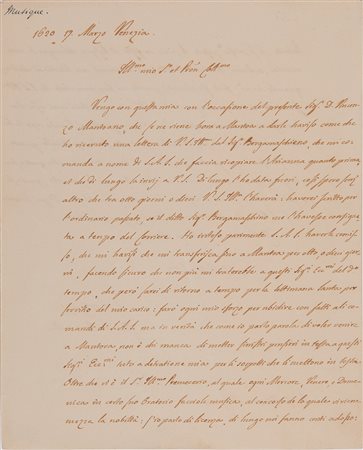 Musique.
1620 17. Marzo Venezia.
Ill.mo mio S.r et Pr͠on Coll.mo
Vengo con questa mia con l'occasione del presente Sig.r D. Vincen
zo Mantoano, che se ne viene hora a Mantoa a darle haviso come
ho ricevuto una lettera di V.S. Ill. dal Sig.r Bergamaschino, che mi co
manda a nome di S.A.S. che faccia ricopiare l'Arianna quanto prima
et che di lungo la invij a V.S. Di lungo l'ho data fuori, et spero fra
altro che tra otto giorni o dieci V.S. Ill. l'haverà; haverei scritto per
l'ordinario passato, se il detto Sig.r Bergamaschino me l'havesse consignata
a tempo del corriere. Ho inteso parimente S.A.S. haverle comis
so, che mi havisi che mi transferisca sino a Mantoa per otto, o dieci gior
ni, facendo sicuro che non più mi tratterebbe a questi Sig.ri Ecc.mi del d.o
tempo, che però sarei di ritorno a tempo per la settimana santa per
servitio del mio carico: farò ogni mio sforzo per ubidire con fatti ali co
mandi di S.A.S. ma in verità che come io porto parola di voler venire
a Mantoa, non è chi manca di metter sinistri pensieri in testa a questi
Sig.ri Ecc.mi tutto a detratione mia per li sospetti che li mettono in testa
Oltre che vi è il S.r Ill.mo Primicerio, al quale ogni Mercore, Venere, e Dome
nica in certo suo Oratorio faccioli musica, al concorso de la quale viene
mezza la nobiltà; S'io parlo di licenza, di lungo mi fanno conti adosso: